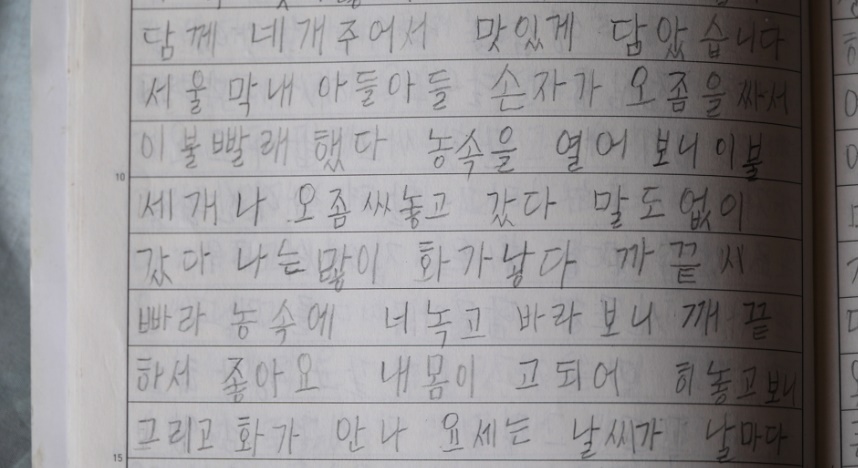 담께 네개주어서 맛있게 담았습니다
서울 막내 아들아들 손자가 오좀을 짜서
이불빨래 했다 농속을 열어 보니이불
세개나 오좀 싸놓고 갔다 말도없이
갔다 나는많이 화가낳다 까끝시
빠라 농속에 너녹고 바라보니 깨끝
하서 좋아요 내몸이 고되어 히놓고보니
그리고 화가 안나 요세는 날씨가 날마다
10
15